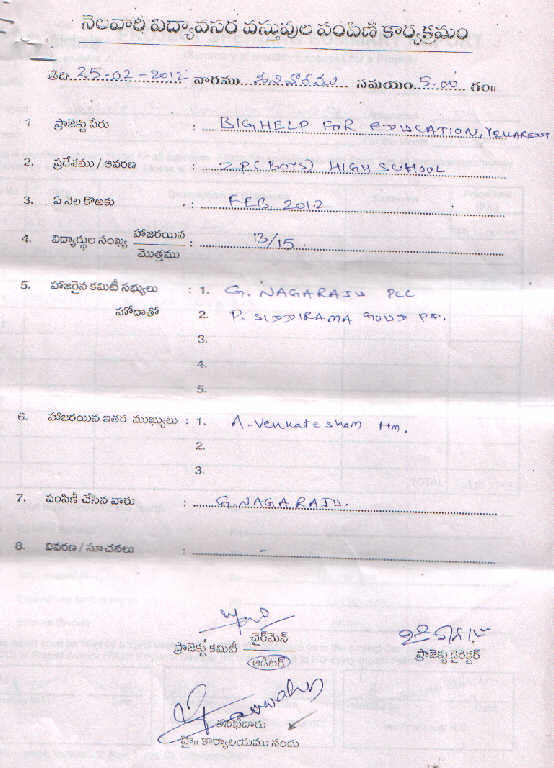 నెలవారి విద్యావసర వస్తువుల పంపిణి కార్యక్రమం
తేది 25-02-2012 వారము శనివారము సమయం 5.00 గం॥
1 ప్రాజెక్టు పేరు : BIG HELP FOR EDUCATION, YELLAREDDY
2. ప్రదేశము / ఆవరణ : Z.P. (BOYS) HIGH SCHOOL
3. ఏ నెల కొఱకు : FEB 2012
4. విద్యార్థుల సంఖ్య హాజరయిన / మొత్తము : 13/15
5. హాజరైన కమిటీ సభ్యులు : 1. G. NAGARAJU PLC
హోదాతో 2. P. SIDDIRAMA GOUD
3.
4.
5.
6. హాజరయిన ఇతర ముఖ్యులు : 1. A. Venkatesham Hm.
2.
3.
7. పంపిణీ చేసిన వారు : G. NAGARAJU.
8. వివరణ / సూచనలు : -
ప్రాజెక్టు కమిటీ ఛైర్మెన్ ప్రాజెక్టు డైరెక్టర్
ఆడిటర్
తనిఖీదారు
హై॥ కార్యాలయము నందు